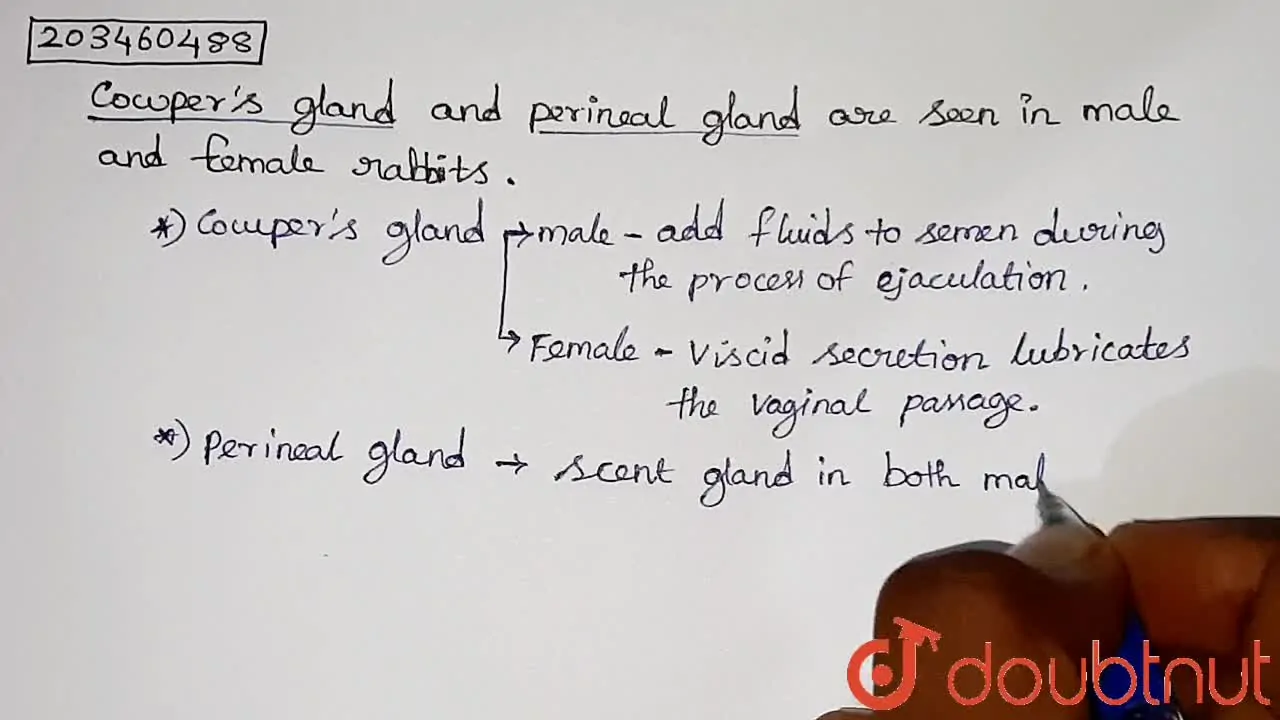 203460488
Cowper's gland and perineal gland are seen in male
and female rabbits.
*) Cowper's gland → male - add fluids to semen during
the process of ejaculation.
→ Female - Viscid secretion lubricates
the vaginal passage.
*) Perineal gland → scent gland in both mal
doubtnut